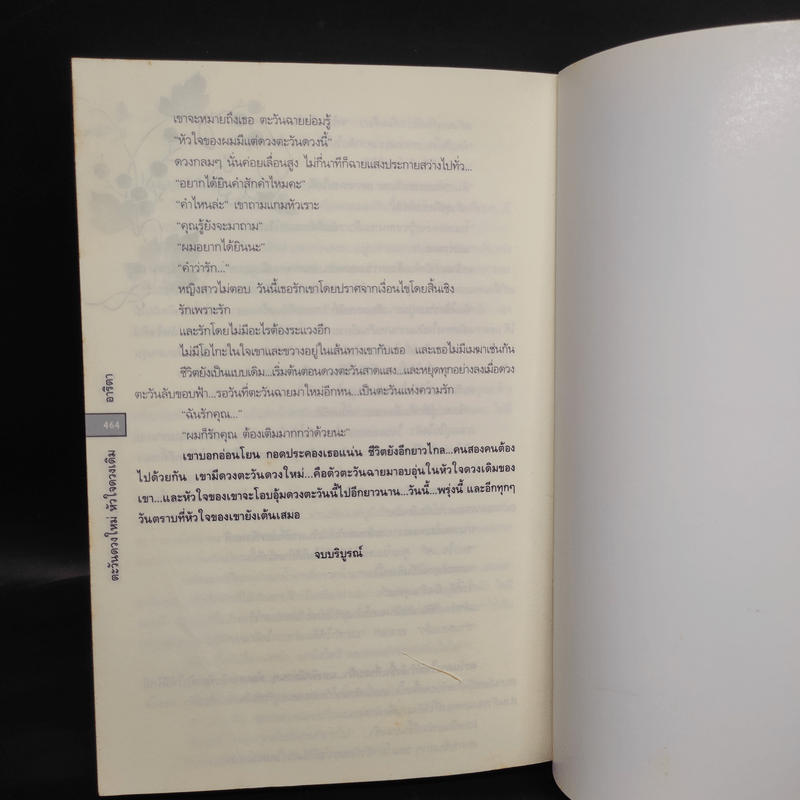 เขาจะหมายถึงเธอ ตะวันฉายย่อมรู้
"หัวใจของผมมีแต่ดวงตะวันดวงนี้"
ดวงกลมๆ นั่นค่อยเลื่อนสูง ไม่กี่นาทีก็ฉายแสงประกายสว่างไปทั่ว...
"อยากได้ยินคำสักคำไหมคะ"
"คำไหนล่ะ" เขาถามแกมหัวเราะ
"คุณรู้ยังจะมาถาม"
"ผมอยากได้ยินนะ"
"คำว่ารัก..."
หญิงสาวไม่ตอบ วันนี้เธอรักเขาโดยปราศจากเงื่อนไขโดยสิ้นเชิง
รักเพราะรัก
และรักโดยไม่มีอะไรต้องระแวงอีก
ไม่มีโอไกะในใจเขาและขวางอยู่ในเส้นทางเขากับเธอ และเธอไม่มีเมฆาเช่นกัน
ชีวิตยังเป็นแบบเดิม...เริ่มต้นตอนดวงตะวันสาดแสง...และหยุดทุกอย่างลงเมื่อดวง
ตะวันลับขอบฟ้า...รอวันที่ตะวันฉายมาใหม่อีกหน...เป็นตะวันแห่งความรัก
"ฉันรักคุณ..."
"ผมก็รักคุณ ต้องเติมมากกว่าด้วยนะ"
เขาบอกอ่อนโยน กอดประคองเธอแน่น ชีวิตยังอีกยาวไกล...คนสองคนต้อง
ไปด้วยกัน เขามีดวงตะวันดวงใหม่...คือตัวตะวันฉายมาอบอุ่นในหัวใจดวงเดิมของ
เขา...และหัวใจของเขาจะโอบอุ้มดวงตะวันนี้ไปอีกยาวนาน...วันนี้...พรุ่งนี้ และอีกทุกๆ
วันตราบที่หัวใจของเขายังเต้นเสมอ
จบบริบูรณ์
อาริตา
464
ตะวันดวงใหม่ หัวใจดวงเดิม